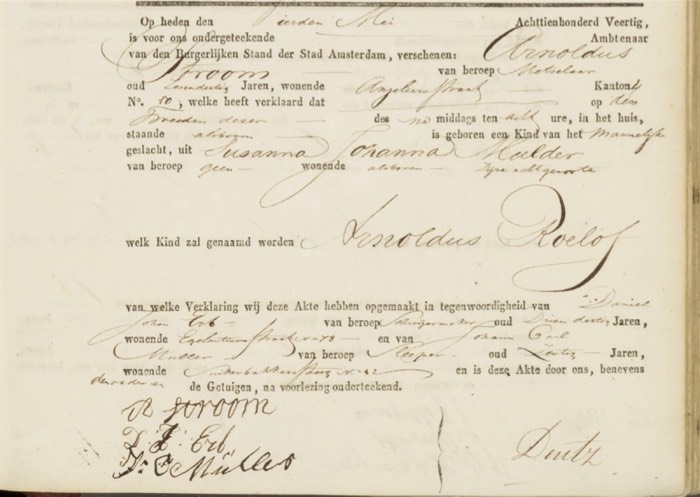 Op heden den Vierden Mei Achttienhonderd Veertig,
is voor ons ondergeteekende Ambtenaar
van den Burgerlijken Stand der Stad Amsterdam, verschenen: Arnoldus
Stroom van beroep Metselaar
oud Jaren, wonende Angelierstraat Kanton 4
N°. 80; welke heeft verklaard dat op den
Tweeden dezer des na middags ten acht ure, in het huis,
staande alsboven is geboren een Kind van het Mannelijke
geslacht, uit Susanna Johanna Mulder
van beroep geen wonende alsboven zijne echtgenoote
welk Kind zal genaamd worden Arnoldus Roelof
van welke Verklaring wij deze Akte hebben opgemaakt in tegenwoordigheid van Daniel
Johan Erb van beroep oud Jaren,
wonende en van Johann Carl
Muller van beroep Sleeper oud Jaren,
wonende en is deze Akte door ons, benevens
den vader en de Getuigen, na voorlezing onderteekend.
A Stroom
D J Erb
J: C Müller
Deutz